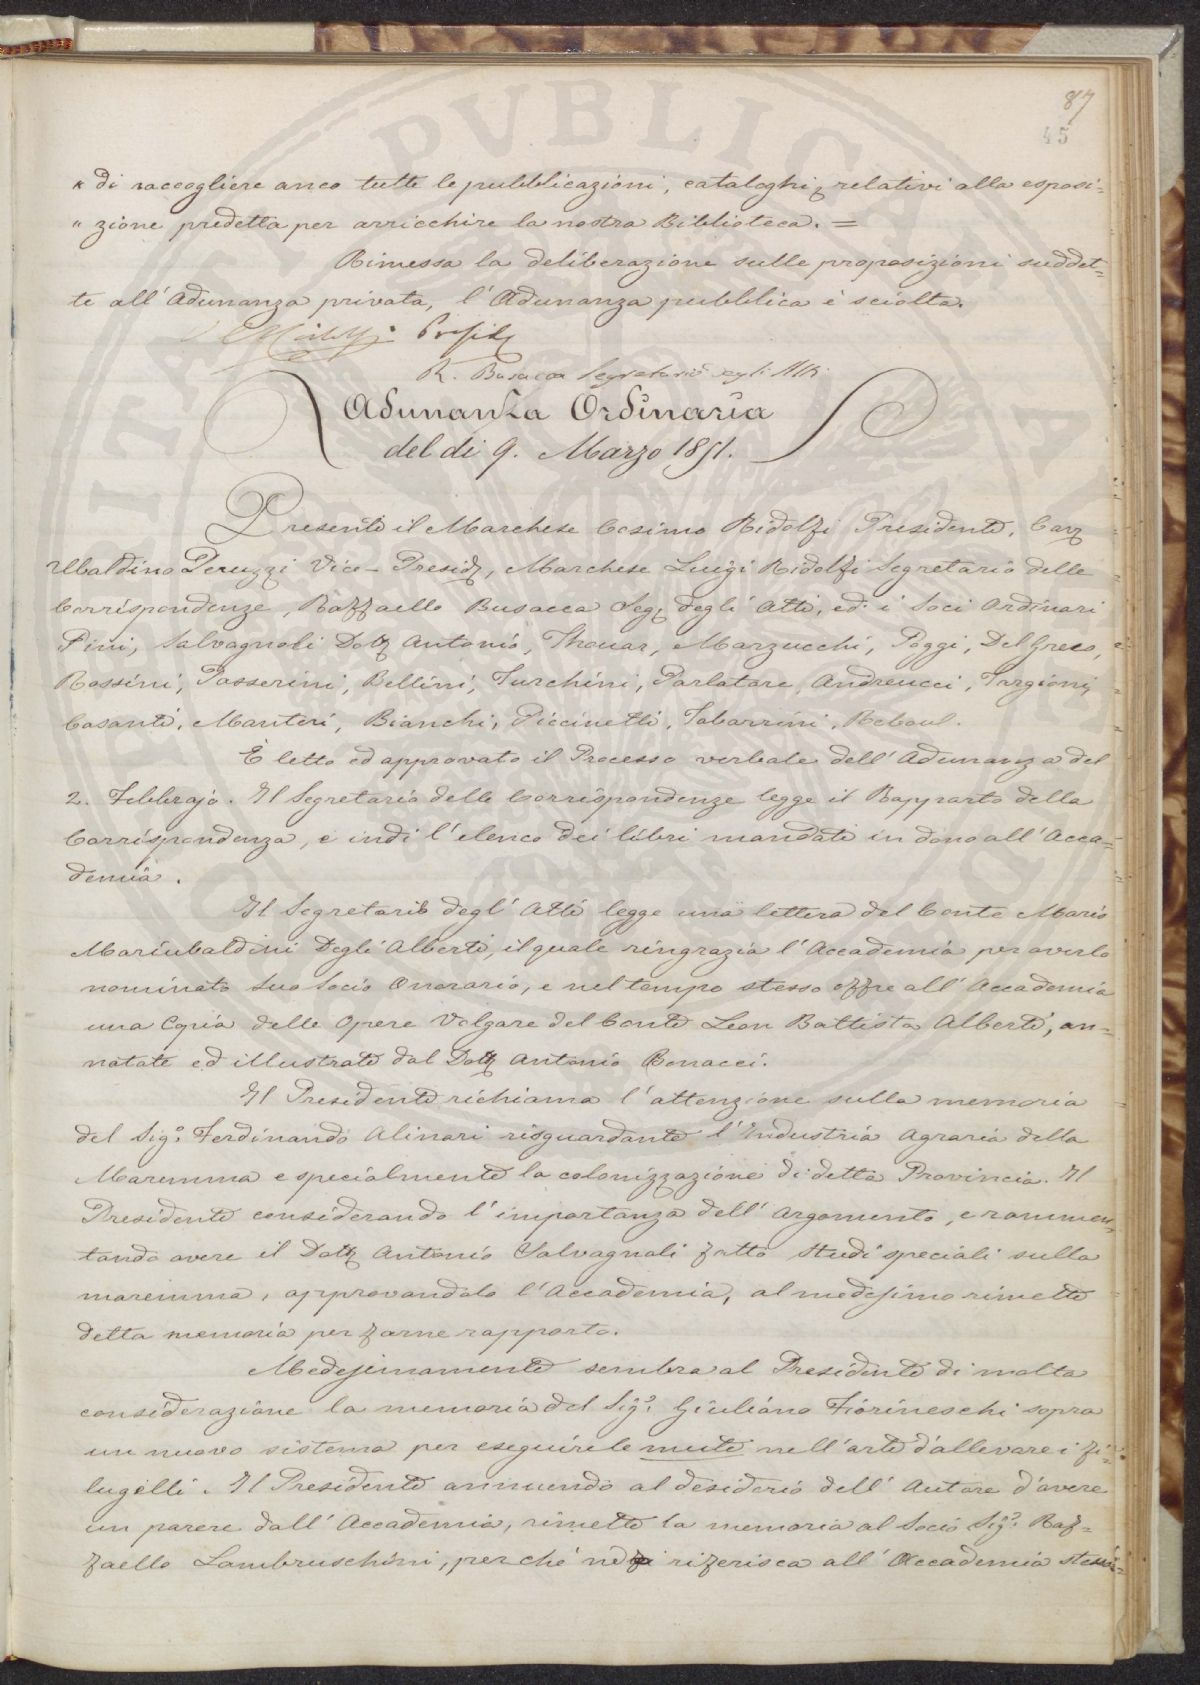 87
45
« di raccogliere anco tutte le pubblicazioni, cataloghi, relativi alla esposi=
" zione predetta per arricchire la nostra Biblioteca. =
Rimessa la deliberazione sulle proposizioni suddet-
te all' Adunanza privata, l' Adunanza pubblica è sciolta.
C Ridolfi Presid.
R. Busacca Segretario degli Atti
Adunanza Ordinaria
del dì 9. Marzo 1851.
Presenti il Marchese Cosimo Ridolfi Presidente, Cav.
Ubaldino Peruzzi Vice-Presid., Marchese Luigi Ridolfi Segretario delle
Corrispondenze, Raffaello Busacca Seg. degli Atti, ed i Soci Ordinari
Pini, Salvagnoli Dott. Antonio, Thouar, Marzucchi, Poggi, Del Greco,
Rossini, Passerini, Bellini, Turchini, Parlatore, Andreucci, Targioni,
Casanti, Manteri, Bianchi, Piccinetti, Tabarrini, Reboul.
È letto ed approvato il Processo verbale dell' Adunanza del
2. Febbrajo. Il Segretario delle Corrispondenze legge il Rapporto della
Corrispondenza, e indi l' elenco dei libri mandati in dono all' Acca=
demia.
Il Segretario degl' Atti legge una lettera del Conte Mario
Mariubaldini Degli Alberti, il quale ringrazia l' Accademia per averlo
nominato Suo Socio Onorario, e nel tempo stesso offre all' Accademia
una Copia delle Opere Volgare del Conte Leon Battista Alberti, an=
notate ed illustrate dal Dott. Antonio Bonacci.
Il Presidente richiama l' attenzione sulla memoria
del Sig.r Ferdinando Alinari risguardante l' Industria Agraria della
Maremma e specialmente la colonizzazione di detta Provincia. Il
Presidente considerando l' importanza dell' argomento, e rammen=
tando avere il Dott. Antonio Salvagnoli fatto studi speciali sulla
maremma, approvandolo l' Accademia, al medesimo rimette
detta memoria per farne rapporto.
Medesimamente sembra al Presidente di molta
considerazione la memoria del Sig.r Giuliano Fiorineschi sopra
un nuovo sistema per eseguire le mute nell' arte d'allevare i fi=
lugelli. Il Presidente annuendo al desiderio dell' Autore d'avere
un parere dall' Accademia, rimette la memoria al Socio Sig.r Raf=
faello Lambruschini, perché ne riferisca all' Accademia stessa=